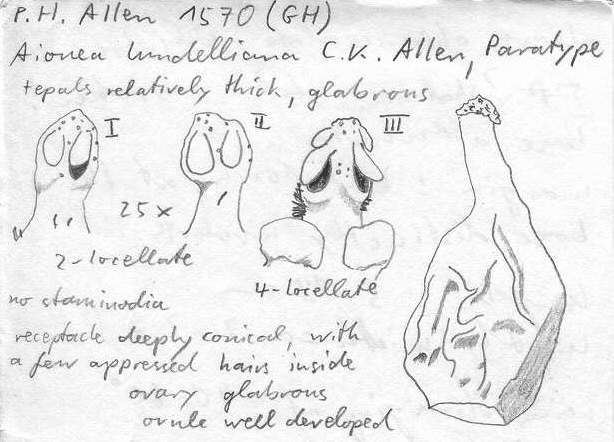 P.H. Allen 1570 (GH)
Aionea lundelliana C.K. Allen, Paratype
tepals relatively thick, glabrous
I II III
25x
2-locellate
4-locellate
no staminodia
receptacle deeply conical, with
a few appressed hairs inside
ovary glabrous
ovule well developed